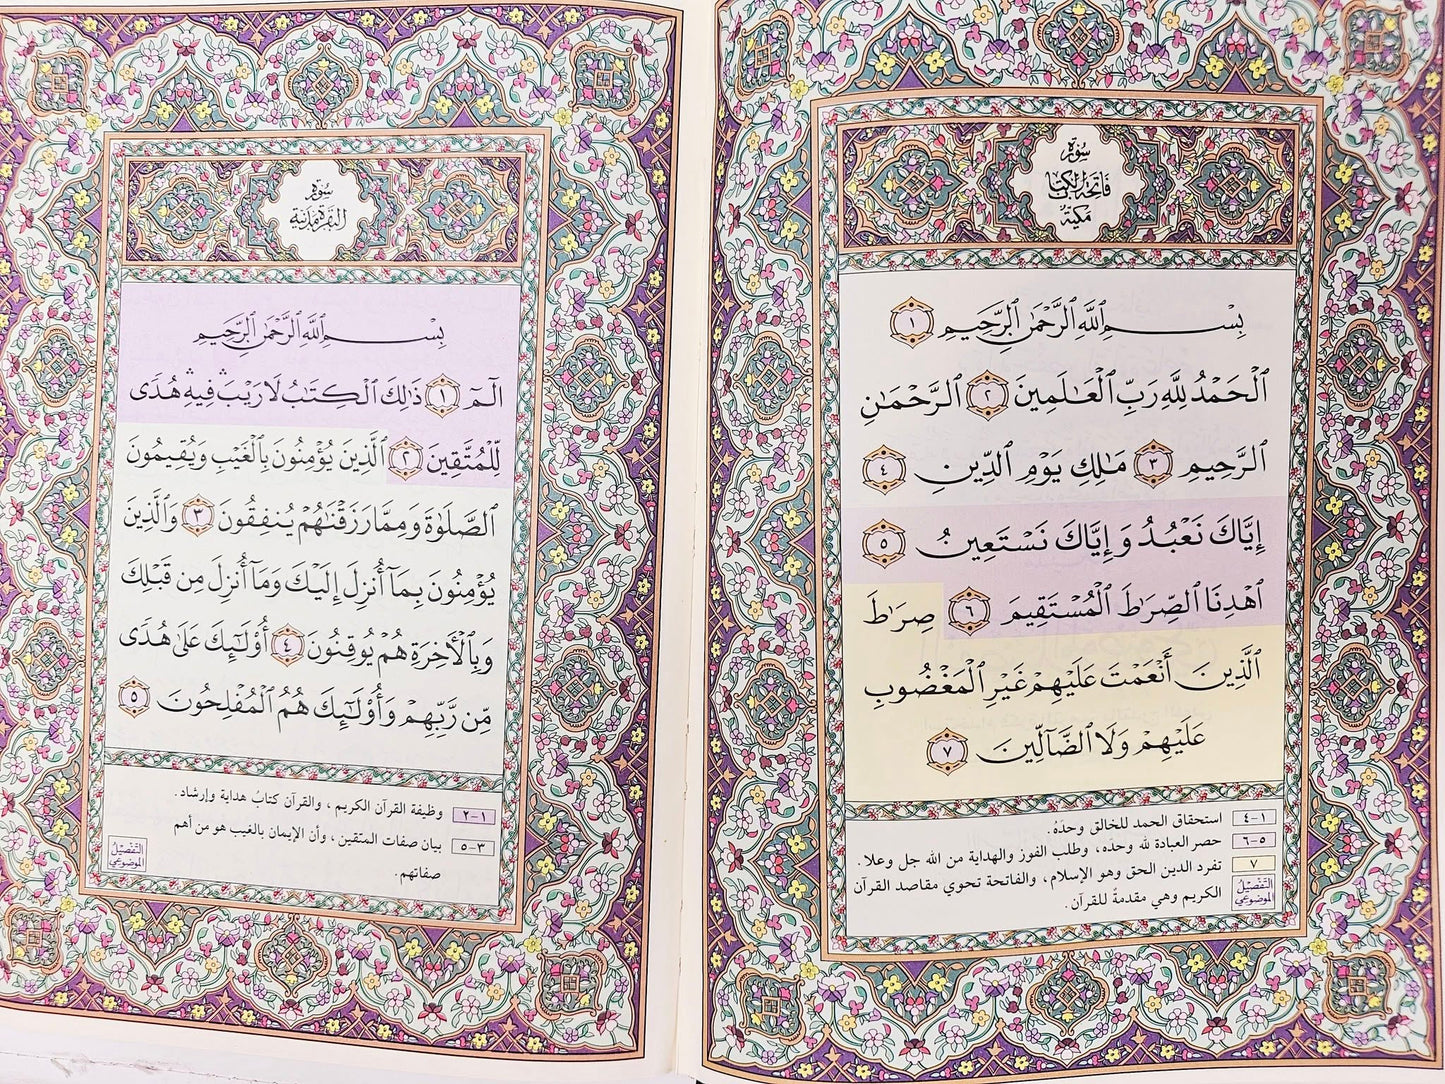 سُورَةُ
فَاتِحَةِ الْكِتَابِ
مَكِّيَّةٌ
بِسْمِ ٱللَّهِ ٱلرَّحْمَٰنِ ٱلرَّحِيمِ ١
ٱلْحَمْدُ لِلَّهِ رَبِّ ٱلْعَٰلَمِينَ ٢ ٱلرَّحْمَٰنِ
ٱلرَّحِيمِ ٣ مَٰلِكِ يَوْمِ ٱلدِّينِ ٤
إِيَّاكَ نَعْبُدُ وَإِيَّاكَ نَسْتَعِينُ ٥
ٱهْدِنَا ٱلصِّرَٰطَ ٱلْمُسْتَقِيمَ ٦ صِرَٰطَ
ٱلَّذِينَ أَنْعَمْتَ عَلَيْهِمْ غَيْرِ ٱلْمَغْضُوبِ
عَلَيْهِمْ وَلَا ٱلضَّآلِّينَ ٧
١-٤ استحقاق الحمد للخالق وحدَهُ.
٥-٦ حصر العبادة لله وحده، وطلب الفوز والهداية من الله جل وعلا.
٧ تفرد الدين الحق وهو الإسلام، والفاتحة تحوي مقاصد القرآن
الكريم وهي مقدمةٌ للقرآن.
التَّفْصِيلُ
الموضوعيُّ
سُورَةُ
البَقَرَةِ مَدَنِيَّة
بِسْمِ ٱللَّهِ ٱلرَّحْمَٰنِ ٱلرَّحِيمِ
الٓمٓ ١ ذَٰلِكَ ٱلْكِتَٰبُ لَا رَيْبَ ۛ فِيهِ ۛ هُدًى
لِّلْمُتَّقِينَ ٢ ٱلَّذِينَ يُؤْمِنُونَ بِٱلْغَيْبِ وَيُقِيمُونَ
ٱلصَّلَوٰةَ وَمِمَّا رَزَقْنَٰهُمْ يُنفِقُونَ ٣ وَٱلَّذِينَ
يُؤْمِنُونَ بِمَآ أُنزِلَ إِلَيْكَ وَمَآ أُنزِلَ مِن قَبْلِكَ
وَبِٱلْأَخِرَةِ هُمْ يُوقِنُونَ ٤ أُو۟لَٰٓئِكَ عَلَىٰ هُدًى
مِّن رَّبِّهِمْ وَأُو۟لَٰٓئِكَ هُمُ ٱلْمُفْلِحُونَ ٥
١-٢ وظيفة القرآن الكريم، والقرآن كتابُ هداية وإرشاد.
٣-٥ بيان صفات المتقين، وأن الإيمان بالغيب هو من أهم
صفاتهم.
التَّفْصِيلُ
الموضوعيُّ